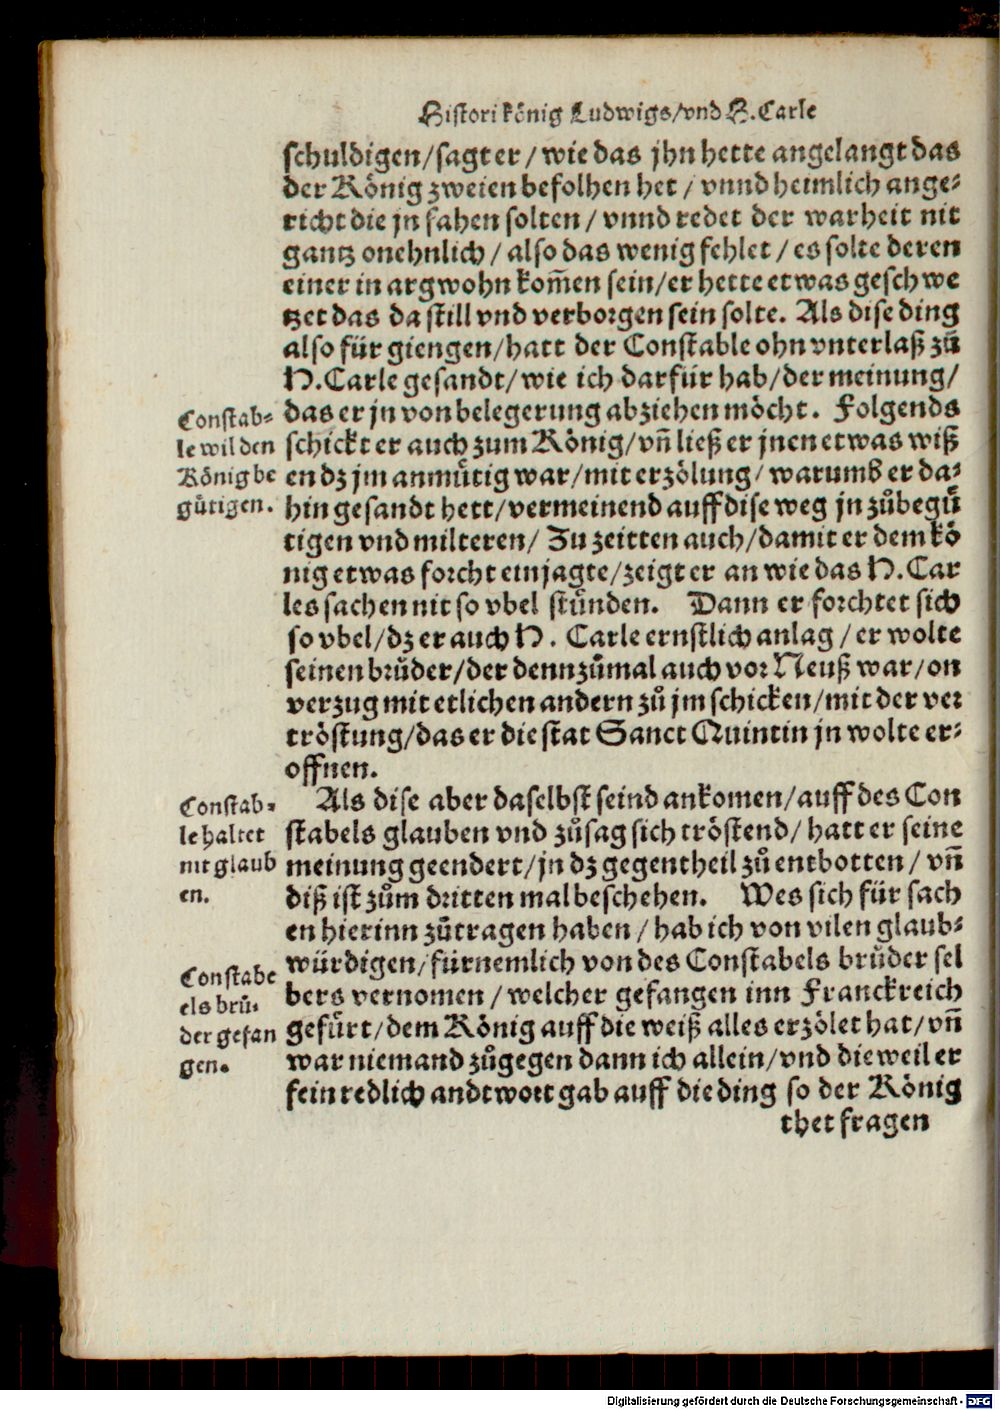 Histori König Ludwigs/vnd H. Carle
schuldigen/sagt er/wie das jhn hette angelangt das
der König zweien befolhen het/vnnd heimlich ange-
richt die jn fahen solten/vnnd redet der warheit nit
gantz onehnlich/also das wenig fehlet/es solte deren
einer in argwohn kom̃en sein/er hette etwas geschwe
tzet das da still vnd verborgen sein solte. Als dise ding
also für giengen/hatt der Constable ohn vnterlaß zů
H. Carle gesandt/wie ich darfür hab/der meinung/
das er jn von belegerung abziehen möcht. Folgends
schickt er auch zum König/vñ ließ er jnen etwas wiß
en dz jm anmůtig war/mit erzölung/warumb er da-
hin gesandt hett/vermeinend auff dise weg jn zů begů
tigen vnd milteren/Zu zeitten auch/damit er dem kö
nig etwas forcht einjagte/zeigt er an wie das H. Car
les sachen nit so vbel stůnden. Dann er forchtet sich
so vbel/dz er auch H. Carle ernstlich anlag/er wolte
seinen brůder/der dennzůmal auch vor Neuß war/on
verzug mit etlichen andern zů jm schicken/mit der ver
tröstung/das er die stat Sanct Quintin jn wolte er-
offnen.
Als dise aber daselbst seind ankomen/auff des Con
stabels glauben vnd zůsag sich tröstend/hatt er seine
meinung geendert/jn dz gegentheil zů entbotten/vñ
diß ist zům dritten mal beschehen. Wes sich für sach
en hierinn zůtragen haben/hab ich von vilen glaub-
würdigen/fürnemlich von des Constabels brůder sel
bers vernomen/welcher gefangen inn Franckreich
gefůrt/dem König auff die weiß alles erzölet hat/vñ
war niemand zůgegen dann ich allein/vnd die weil er
fein redlich andtwort gab auff die ding so der König
thet fragen
Constab-
le wil den
König be
gůtigen.
Constab-
le haltet
nit glaub
en.
Constabe
els brů-
der gefan
gen.
Digitalisierung gefördert durch die Deutsche Forschungsgemeinschaft - DFG